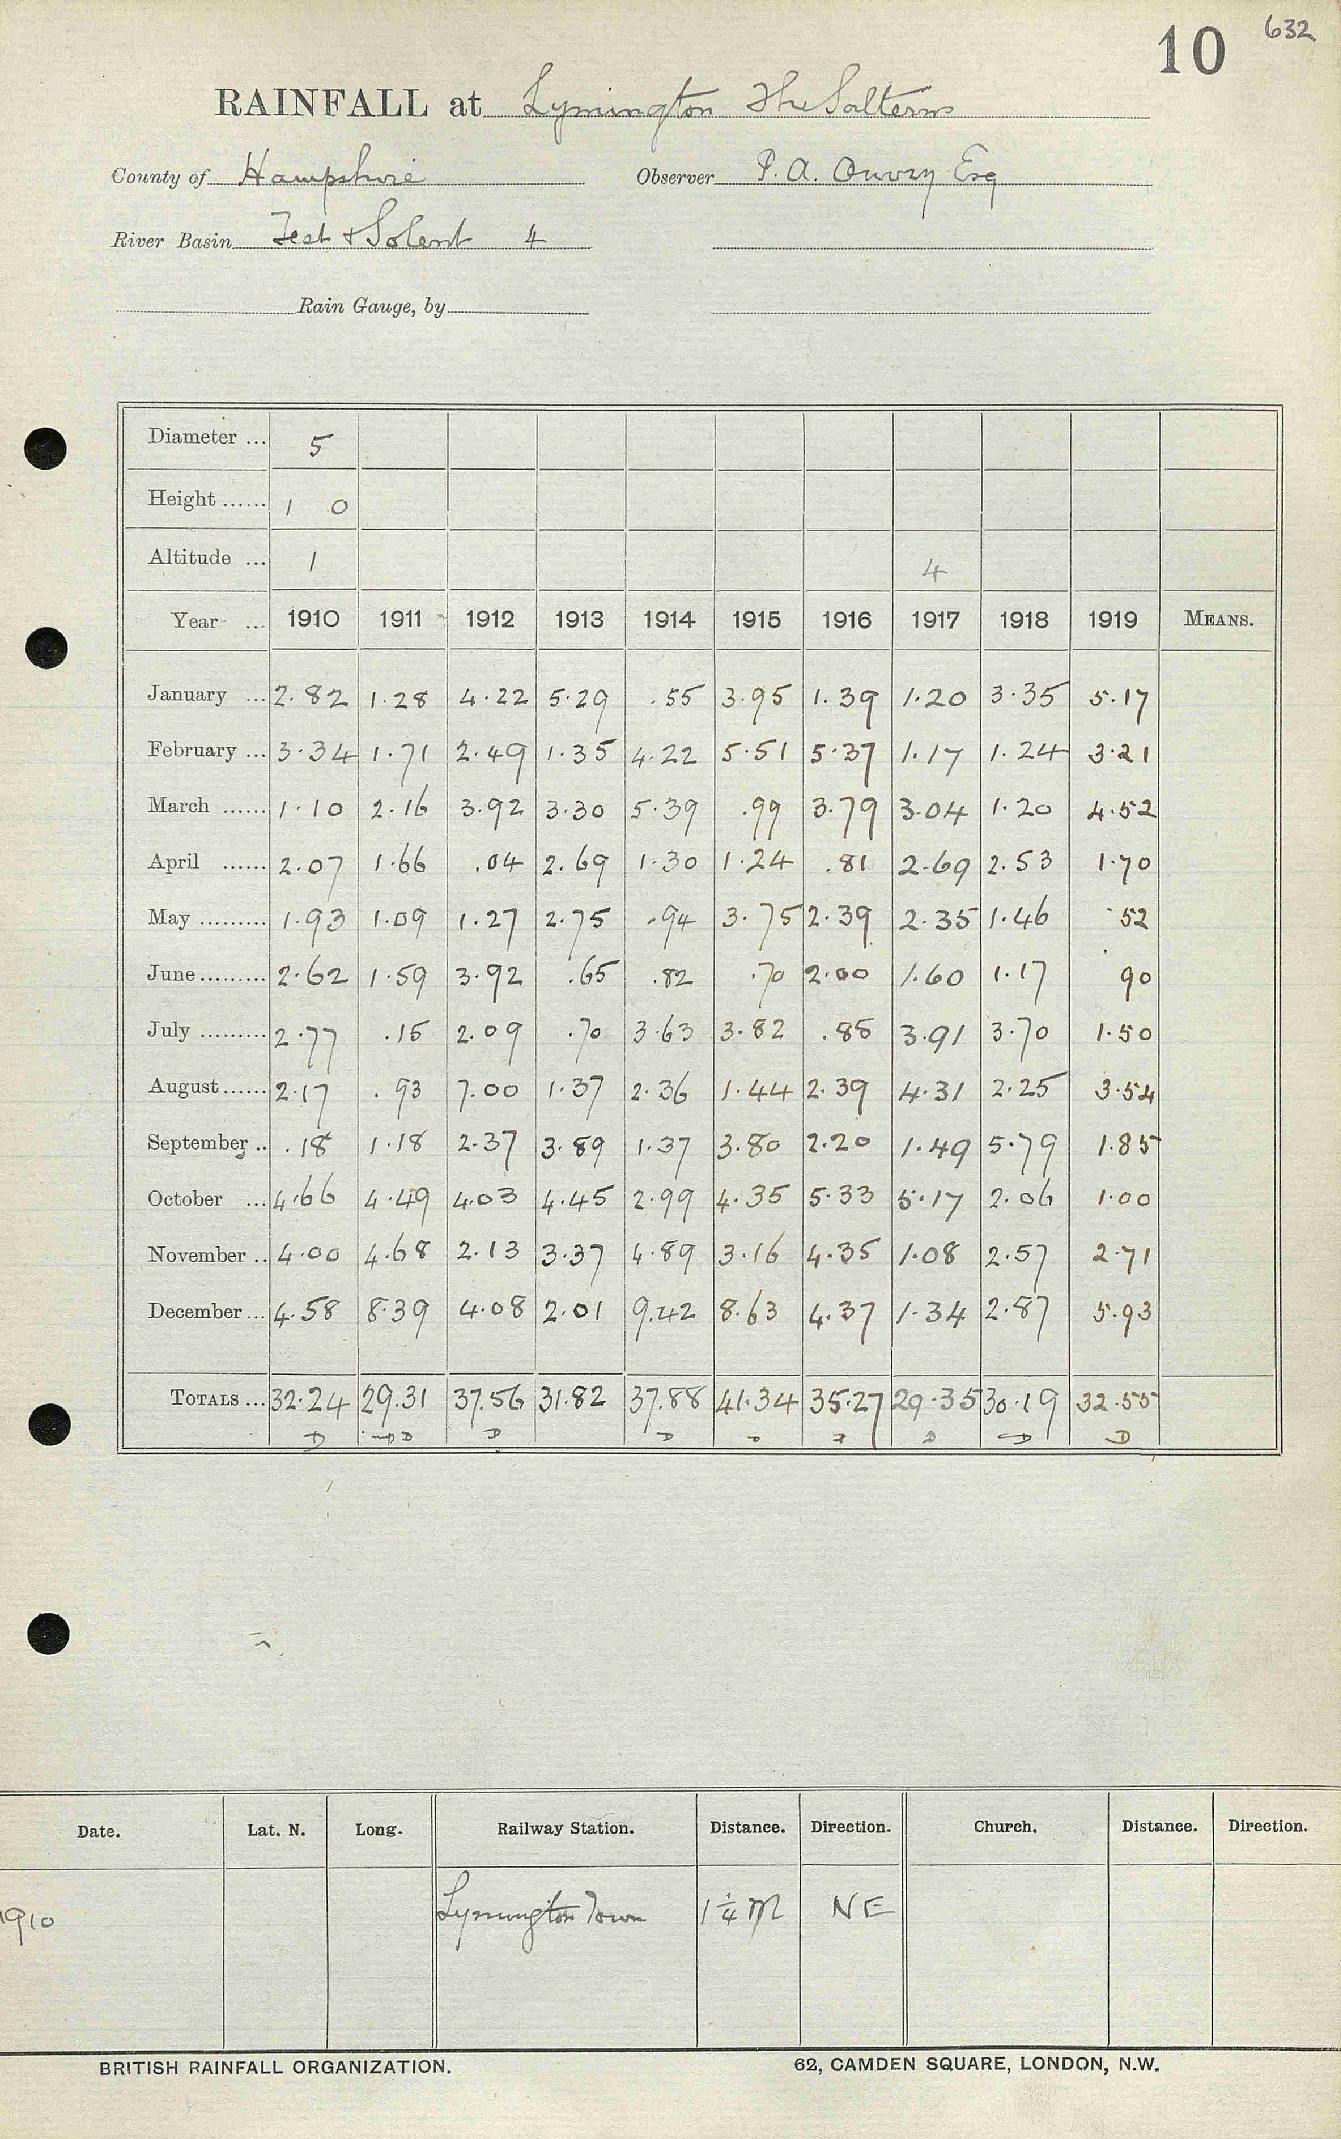 10 632
RAINFALL at Lymington The Salterns
County of Hampshire Observer P. A. Ouvry Esq
River Basin Test & Solent 4
Rain Gauge, by
Diameter ... 5
Height ...... 1 0
Altitude ... 1 4
Year ... 1910 1911 1912 1913 1914 1915 1916 1917 1918 1919 MEANS.
January ... 2.82 1.28 4.22 5.29 .55 3.95 1.39 1.20 3.35 5.17
February ... 3.34 1.71 2.49 1.35 4.22 5.51 5.37 1.17 1.24 3.21
March ...... 1.10 2.16 3.92 3.30 5.39 .99 3.79 3.04 1.20 4.52
April ...... 2.07 1.66 .04 2.69 1.30 1.24 .81 2.69 2.53 1.70
May ......... 1.93 1.09 1.27 2.75 .94 3.75 2.39 2.35 1.46 .52
June ......... 2.62 1.59 3.92 .65 .82 .70 2.00 1.60 1.17 .90
July ......... 2.77 .15 2.09 .70 3.63 3.82 .88 3.91 3.70 1.50
August ...... 2.17 .93 7.00 1.37 2.36 1.44 2.39 4.31 2.25 3.54
September .. .18 1.18 2.37 3.89 1.37 3.80 2.20 1.49 5.79 1.85
October ... 4.66 4.49 4.03 4.45 2.99 4.35 5.33 5.17 2.06 1.00
November .. 4.00 4.68 2.13 3.37 4.89 3.16 4.35 1.08 2.57 2.71
December ... 4.58 8.39 4.08 2.01 9.42 8.63 4.37 1.34 2.87 5.93
TOTALS ... 32.24 29.31 37.56 31.82 37.88 41.34 35.27 29.35 30.19 32.55
Date. Lat. N. Long. Railway Station. Distance. Direction. Church. Distance. Direction.
1910 Lymington Town 1¼ M NE
BRITISH RAINFALL ORGANIZATION. 62, CAMDEN SQUARE, LONDON, N.W.